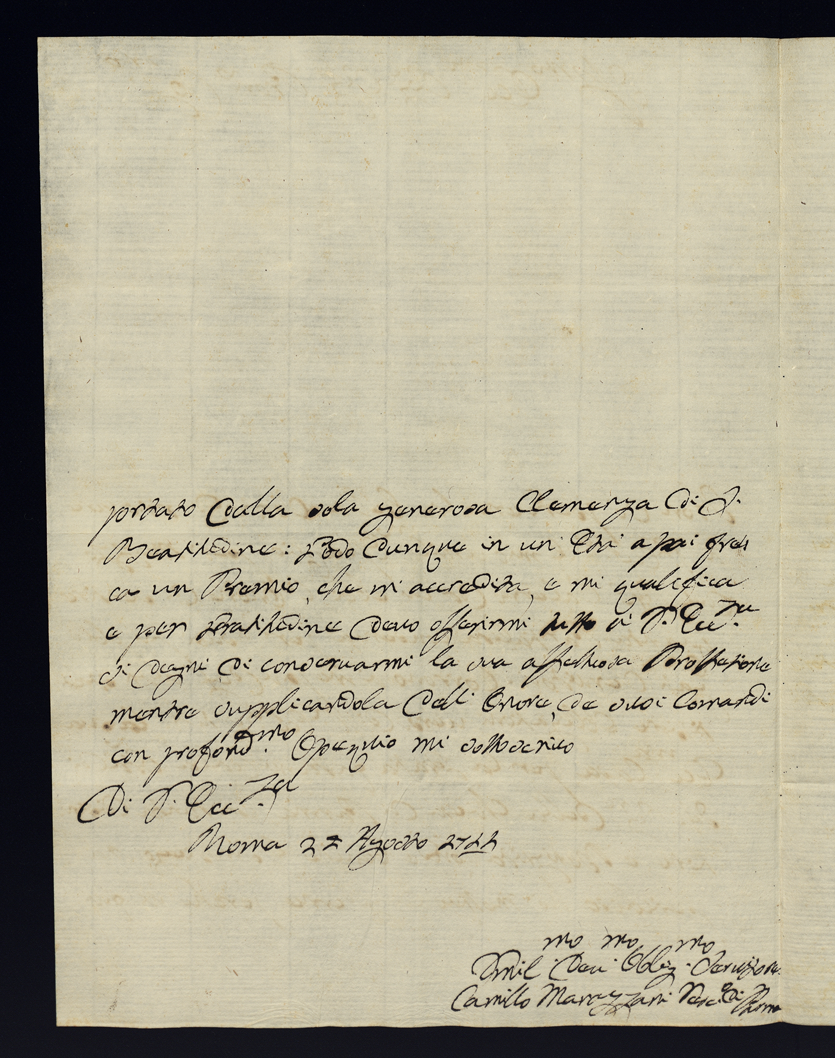 portato dalla sola generosa Clemenza di S.
Beatitudine: godo dunque in un Età assai fres
ca un Premio, che mi accredita, e mi qualifica
e per gratitudine devo offerirmi tutto à V. Ecc.za
si degni di conservarmi la sua affettuosa Protezione
mentre supplicandola dell' Onore, de suoi Comandi
con profond.mo Ossequio mi sottoscrivo
Di V. Ecc.za
Roma 22 Agosto 1744
Umil.mo Dev.mo Obblig.mo Servitore
Camillo Marazzani Vesc.o di